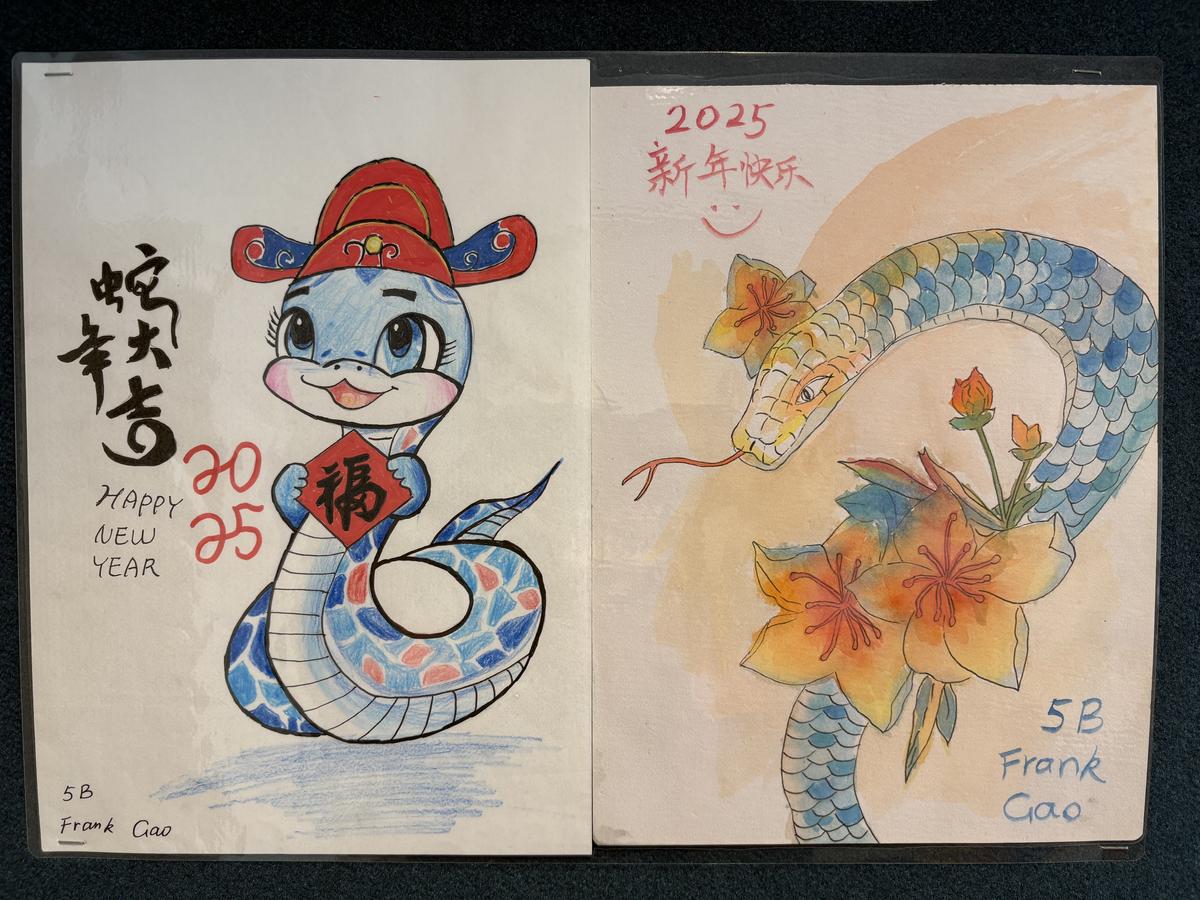 蛇
年大
吉
2025
HAPPY
NEW
YEAR
福
5B
Frank Gao
2025
新年快乐
5B
Frank
Gao